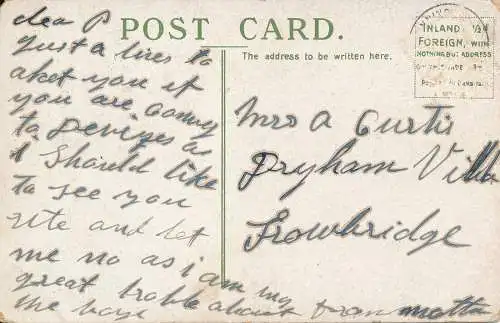 POST CARD.
The address to be written here.
INLAND ½d
FOREIGN, WITH
NOTHING BUT ADDRESS
dea P
Just a lines to
aket you if
you are Coming
to Devizes as
i Should like
to see you
rite and let
me no as i am in
great troble about
the boys
Mrs A Curtis
Dryham Villa
Trowbridge
from mother